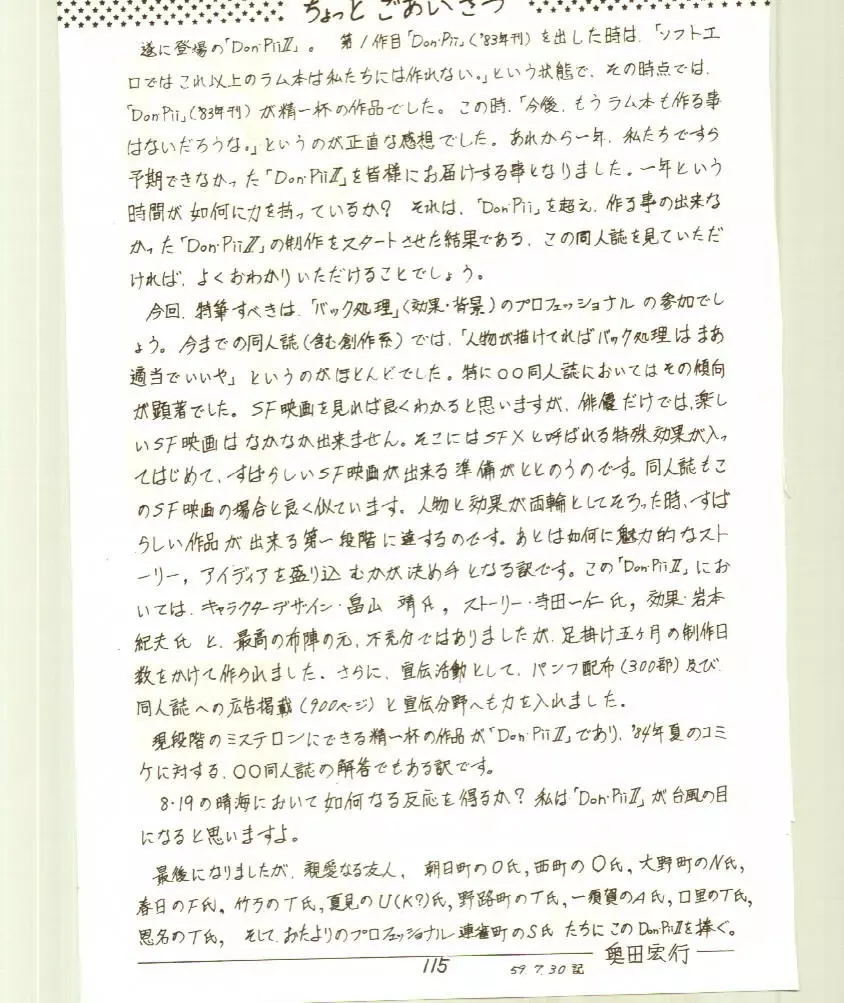 ちょっと ごあいさつ
遂に登場の「Don・PiiⅡ」。 第1作目「Don・Pii」('83年刊)を出した時は、「ソフトエ
ロではこれ以上のラム本は私たちには作れない。」という状態で、その時点では、
「Don・Pii」('83年刊)が精一杯の作品でした。この時、「今後、もうラム本も作る事
はないだろうな。」というのが正直な感想でした。あれから一年、私たちですら
予期できなかった「Don・PiiⅡ」を皆様にお届けする事となりました。一年という
時間が如何に力を持っているか? それは、「Don・Pii」を超え、作る事の出来な
かった「Don・PiiⅡ」の制作をスタートさせた結果である、この同人誌を見ていただ
ければ、よくおわかりいただけることでしょう。
今回、特筆すべきは、「バック処理」(効果・背景)のプロフェッショナルの参加でし
ょう。今までの同人誌(含む創作系)では、「人物が描けてればバック処理はまあ
適当でいいや」というのがほとんどでした。特に○○同人誌においてはその傾向
が顕著でした。SF映画を見れば良くわかると思いますが、俳優だけでは、楽し
いSF映画はなかなか出来ません。そこにはSFXと呼ばれる特殊効果が入っ
てはじめて、すばらしいSF映画が出来る準備がととのうのです。同人誌もこ
のSF映画の場合と良く似ています。人物と効果が両輪としてそろった時、すば
らしい作品が出来る第一段階に達するのです。あとは如何に魅力的なスト
ーリー，アイディアを盛り込むかが決め手となる訳です。この「Don・PiiⅡ」にお
いては、キャラクターデザイン・畠山 靖氏，ストーリー・寺田一仁氏，効果・岩本
紀夫氏 と、最高の布陣の元、不充分ではありましたが、足掛け五ヶ月の制作日
数をかけて作られました。さらに、宣伝活動として、パンフ配布(300部)及び
同人誌への広告掲載(900ページ)と宣伝分野へも力を入れました。
現段階のミステロンにできる精一杯の作品が「Don・PiiⅡ」であり、'84年夏のコミ
ケに対する、○○同人誌の解答でもある訳です。
8・19の晴海において如何なる反応を得るか? 私は「Don・PiiⅡ」が台風の目
になると思いますよ。
最後になりましたが、親愛なる友人、 朝日町のO氏，西町のO氏，大野町のN氏，
春日のF氏，竹ラのT氏，夏見のU(K?)氏，野路町のT氏，一須賀のA氏，口里のT氏，
恩名のT氏， そして、おたよりのプロフェッショナル連雀町のS氏 たちにこのDon・PiiⅡを捧ぐ。
奥田宏行
115
59.7.30記